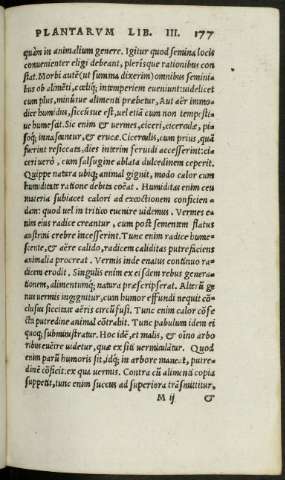 PLANTARVM LIB. III. 177
quàm in animalium genere. Igitur quod semina locis
convenienter eligi debeant, plerisque rationibus con
stat. Morbi autē (ut summa dixerim) omnibus semini
bus ob alimēti, cœliq; intemperiem eveniunt: uidelicet
cum plus, minúsue alimenti præbetur, Aut aër immo
dice humidus, siccúsue est, uel etiā cum non tempesti
ue humescit. Sic enim & vermes, ciceri, cicerculæ, pi
soq; innascuntur, & erucæ. Cicerculis, cum prius, quā
fuerint resiccatæ, dies interim fervidi accesserint: ci
ceri verò, cum salsugine ablata dulcedinem ceperit.
Quippe natura ubiq; animal gignit, modo calor cum
humiditate ratione debita coëat. Humiditas enim ceu
materia subiacet calori ad excoctionem conficien
dam: quod vel in tritico euenire uidemus. Vermes e
nim eius radice creantur, cum post sementem flatus
austrini crebre incesserint. Tunc enim radice hume
scente, & aëre calido, radicem caliditas putrefaciens
animalia procreat. Vermis inde enatus continuo ra
dicem erodit. Singulis enim ex eisdem rebus genera
tionem, alimentumq; natura præscripserat. Alterū ge
nus vermis ingignitur, cum humor effundi nequit cō-
clusus siccitate aëris circūfusi. Tunc enim calor cōfe
ctu putredine animal cōtrahit. Tunc pabulum idem ei
quoq; subministratur. Hoc idē, et malis, & oīno arbo
ribus euēire uidetur, quæ ex siti uermiculātur. Quod
enim parū humoris sit, idq; in arbore maneat, putre-
dinē cōficit: ex qua vermis. Contra cū alimenti copia
suppetit, tunc enim succus ad superiora trāsmittitur,
M ij &